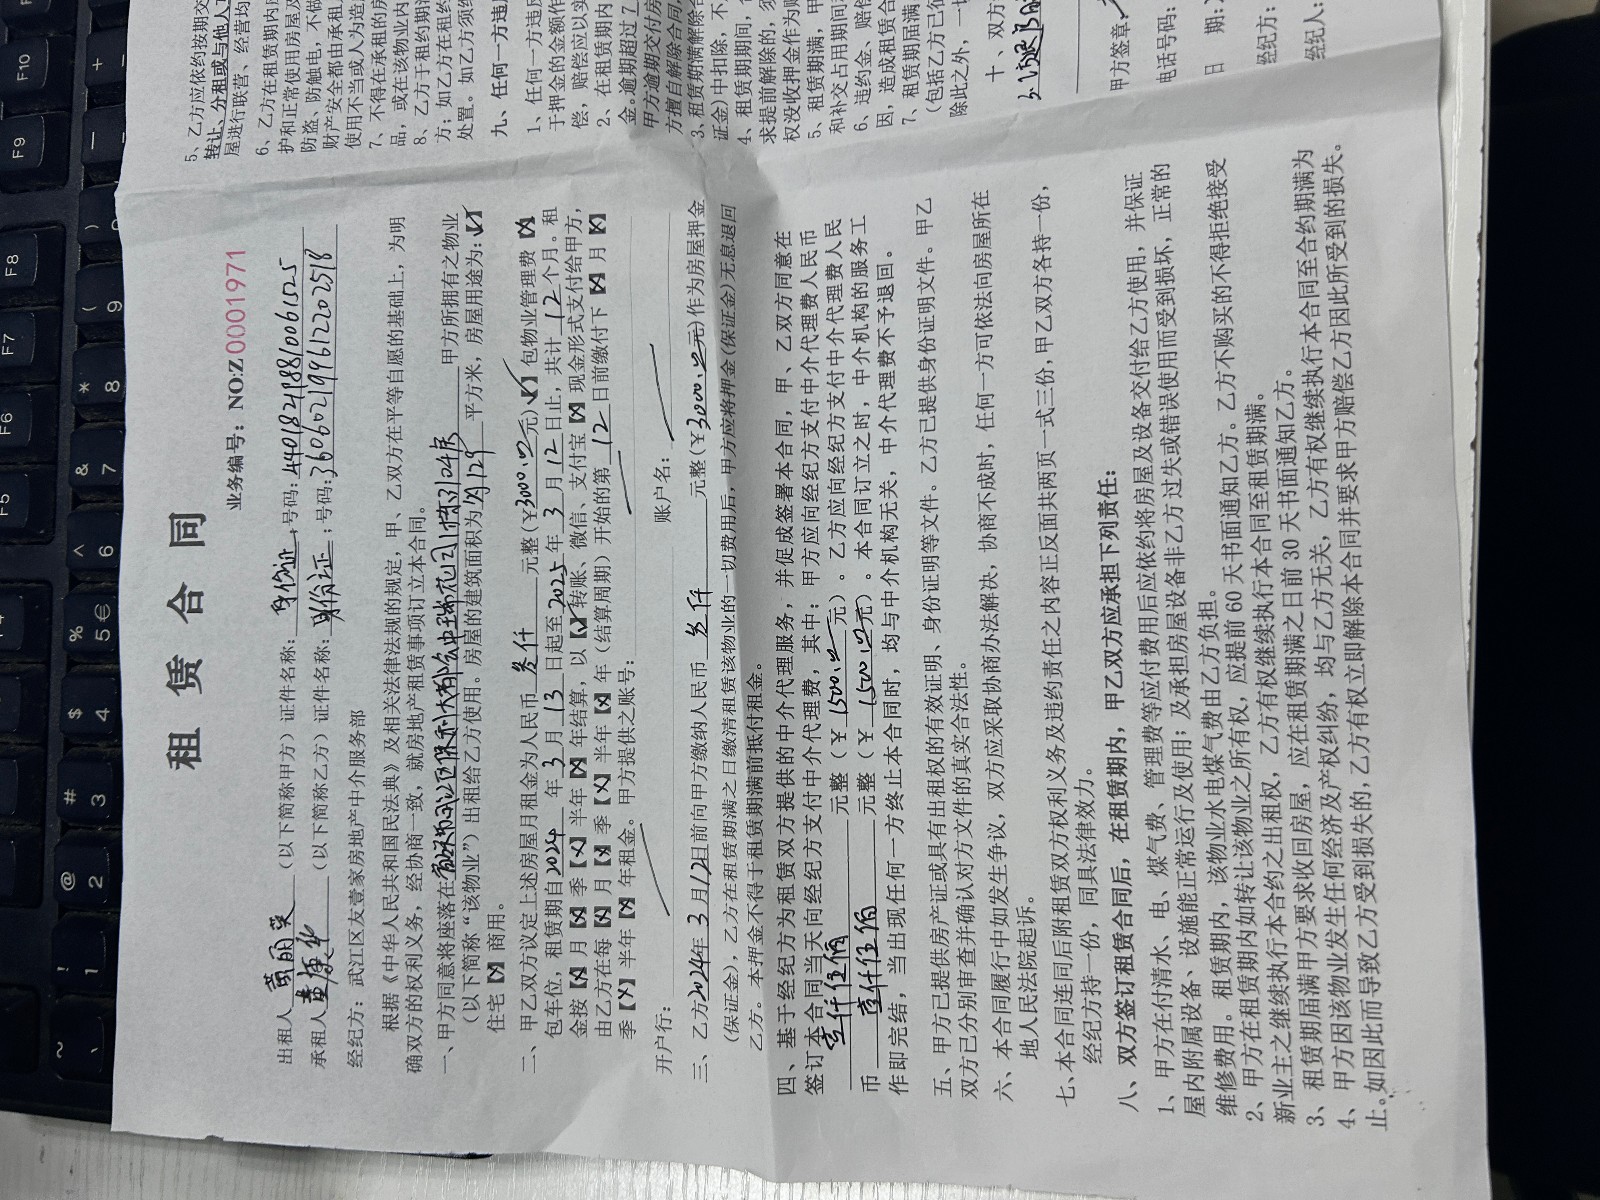 租 赁 合 同
业务编号：NO:Z0001971
出租人（以下简称甲方）证件名称：身份证；号码：440182198810061525
承租人（以下简称乙方）证件名称：身份证；号码：360602199612202518
经纪方：武江区友壹家房地产中介服务部
根据《中华人民共和国民法典》及相关法律法规的规定，甲、乙双方在平等自愿的基础上，为明
确双方的权利义务，经协商一致，就房地产租赁事项订立本合同。
一、甲方同意将座落在 甲方所拥有之物业
（以下简称“该物业”）出租给乙方使用。房屋的建筑面积为 129 平方米，房屋用途为：【✓】
住宅【X】商用。
二、甲乙双方议定上述房屋月租金为人民币 叁仟 元整（¥3000.00元）【✓】包物业管理费【X】
包车位，租赁期自2024年3月13日起至2025年3月12日止，共计12个月。租
金按【X】月【X】季【X】半年【X】年结算，以【✓】转账、微信、支付宝【X】现金形式支付给甲方，
由乙方在每【X】月【X】季【X】半年【X】年（结算周期）开始的第12日前缴付下【X】月【X】
季【X】半年【X】年租金。甲方提供之账号：
开户行： 账户名：
三、乙方2024年3月12日前向甲方缴纳人民币 叁仟 元整（¥3000.00元）作为房屋押金
（保证金），乙方在租赁期满之日缴清租赁该物业的一切费用后，甲方应将押金（保证金）无息退回
乙方。本押金不得于租赁期满前抵付租金。
四、基于经纪方为租赁双方提供的中介代理服务，并促成签署本合同，甲、乙双方同意在
签订本合同当天向经纪方支付中介代理费，其中：甲方应向经纪方支付中介代理费人民币
壹仟伍佰 元整（¥1500.00元）。乙方应向经纪方支付中介代理费人民
币 壹仟伍佰 元整（¥1500.00元）。本合同订立之时，中介机构的服务工
作即完结，当出现任何一方终止本合同时，均与中介机构无关，中介代理费不予退回。
五、甲方已提供房产证或具有出租权的有效证明、身份证明等文件。乙方已提供身份证明文件。甲乙
双方已分别审查并确认对方文件的真实合法性。
六、本合同履行中如发生争议，双方应采取协商办法解决，协商不成时，任何一方可依法向房屋所在
地人民法院起诉。
七、本合同连同后附租赁双方权利义务及违约责任之内容正反面共两页一式三份，甲乙双方各持一份，
经纪方持一份，同具法律效力。
八、双方签订租赁合同后，在租赁期内，甲乙双方应承担下列责任：
1、甲方在付清水、电、煤气费、管理费等应付费用后应依约将房屋及设备交付给乙方使用，并保证
屋内附属设备、设施能正常运行及使用；及承担房屋设备非乙方过失或错误使用而受到损坏，正常的
维修费用。租赁期内，该物业水电煤气费由乙方负担。
2、甲方在租赁期内如转让该物业之所有权，应提前60天书面通知乙方。乙方不购买的不得拒绝接受
新业主之继续执行本合约之出租权，乙方有权继续执行本合同至租赁期满。
3、租赁期届满甲方要求收回房屋，应在租赁期满之日前30天书面通知乙方。
4、甲方因该物业发生任何经济及产权纠纷，均与乙方无关，乙方有权继续执行本合同至合约期满为
止。如因此而导致乙方受到损失的，乙方有权立即解除本合同并要求甲方赔偿乙方因此所受到的损失。
5、乙方应依约按期交
转让、分租或与他人
屋进行联营、经营均
6、乙方在租赁期内应
护和正常使用房屋及
防盗、防触电，不做
财产安全都由承租
使用不当或人为造
7、不得在承租的房
品，或在该物业内
8、乙方于租约期
方；如乙方在租约
处置。如乙方须
九、任何一方违
1、任何一方违反
于押金的金额作
偿，赔偿应以实
2、在租赁期内
金。逾期超过7
甲方逾期交付房
方擅自解除合同，
3、租赁期满解除合
证金）中扣除，不
4、租赁期期间，
求提前解除的，须
权没收押金作为
5、租赁期满，甲
和补交占用期间
6、违约金、赔偿
因，造成租赁合
7、租赁期届满
（包括乙方已征
除此之外，一
十、双方
甲方签章：
电话号码：
日 期：
经纪方：
经纪人：